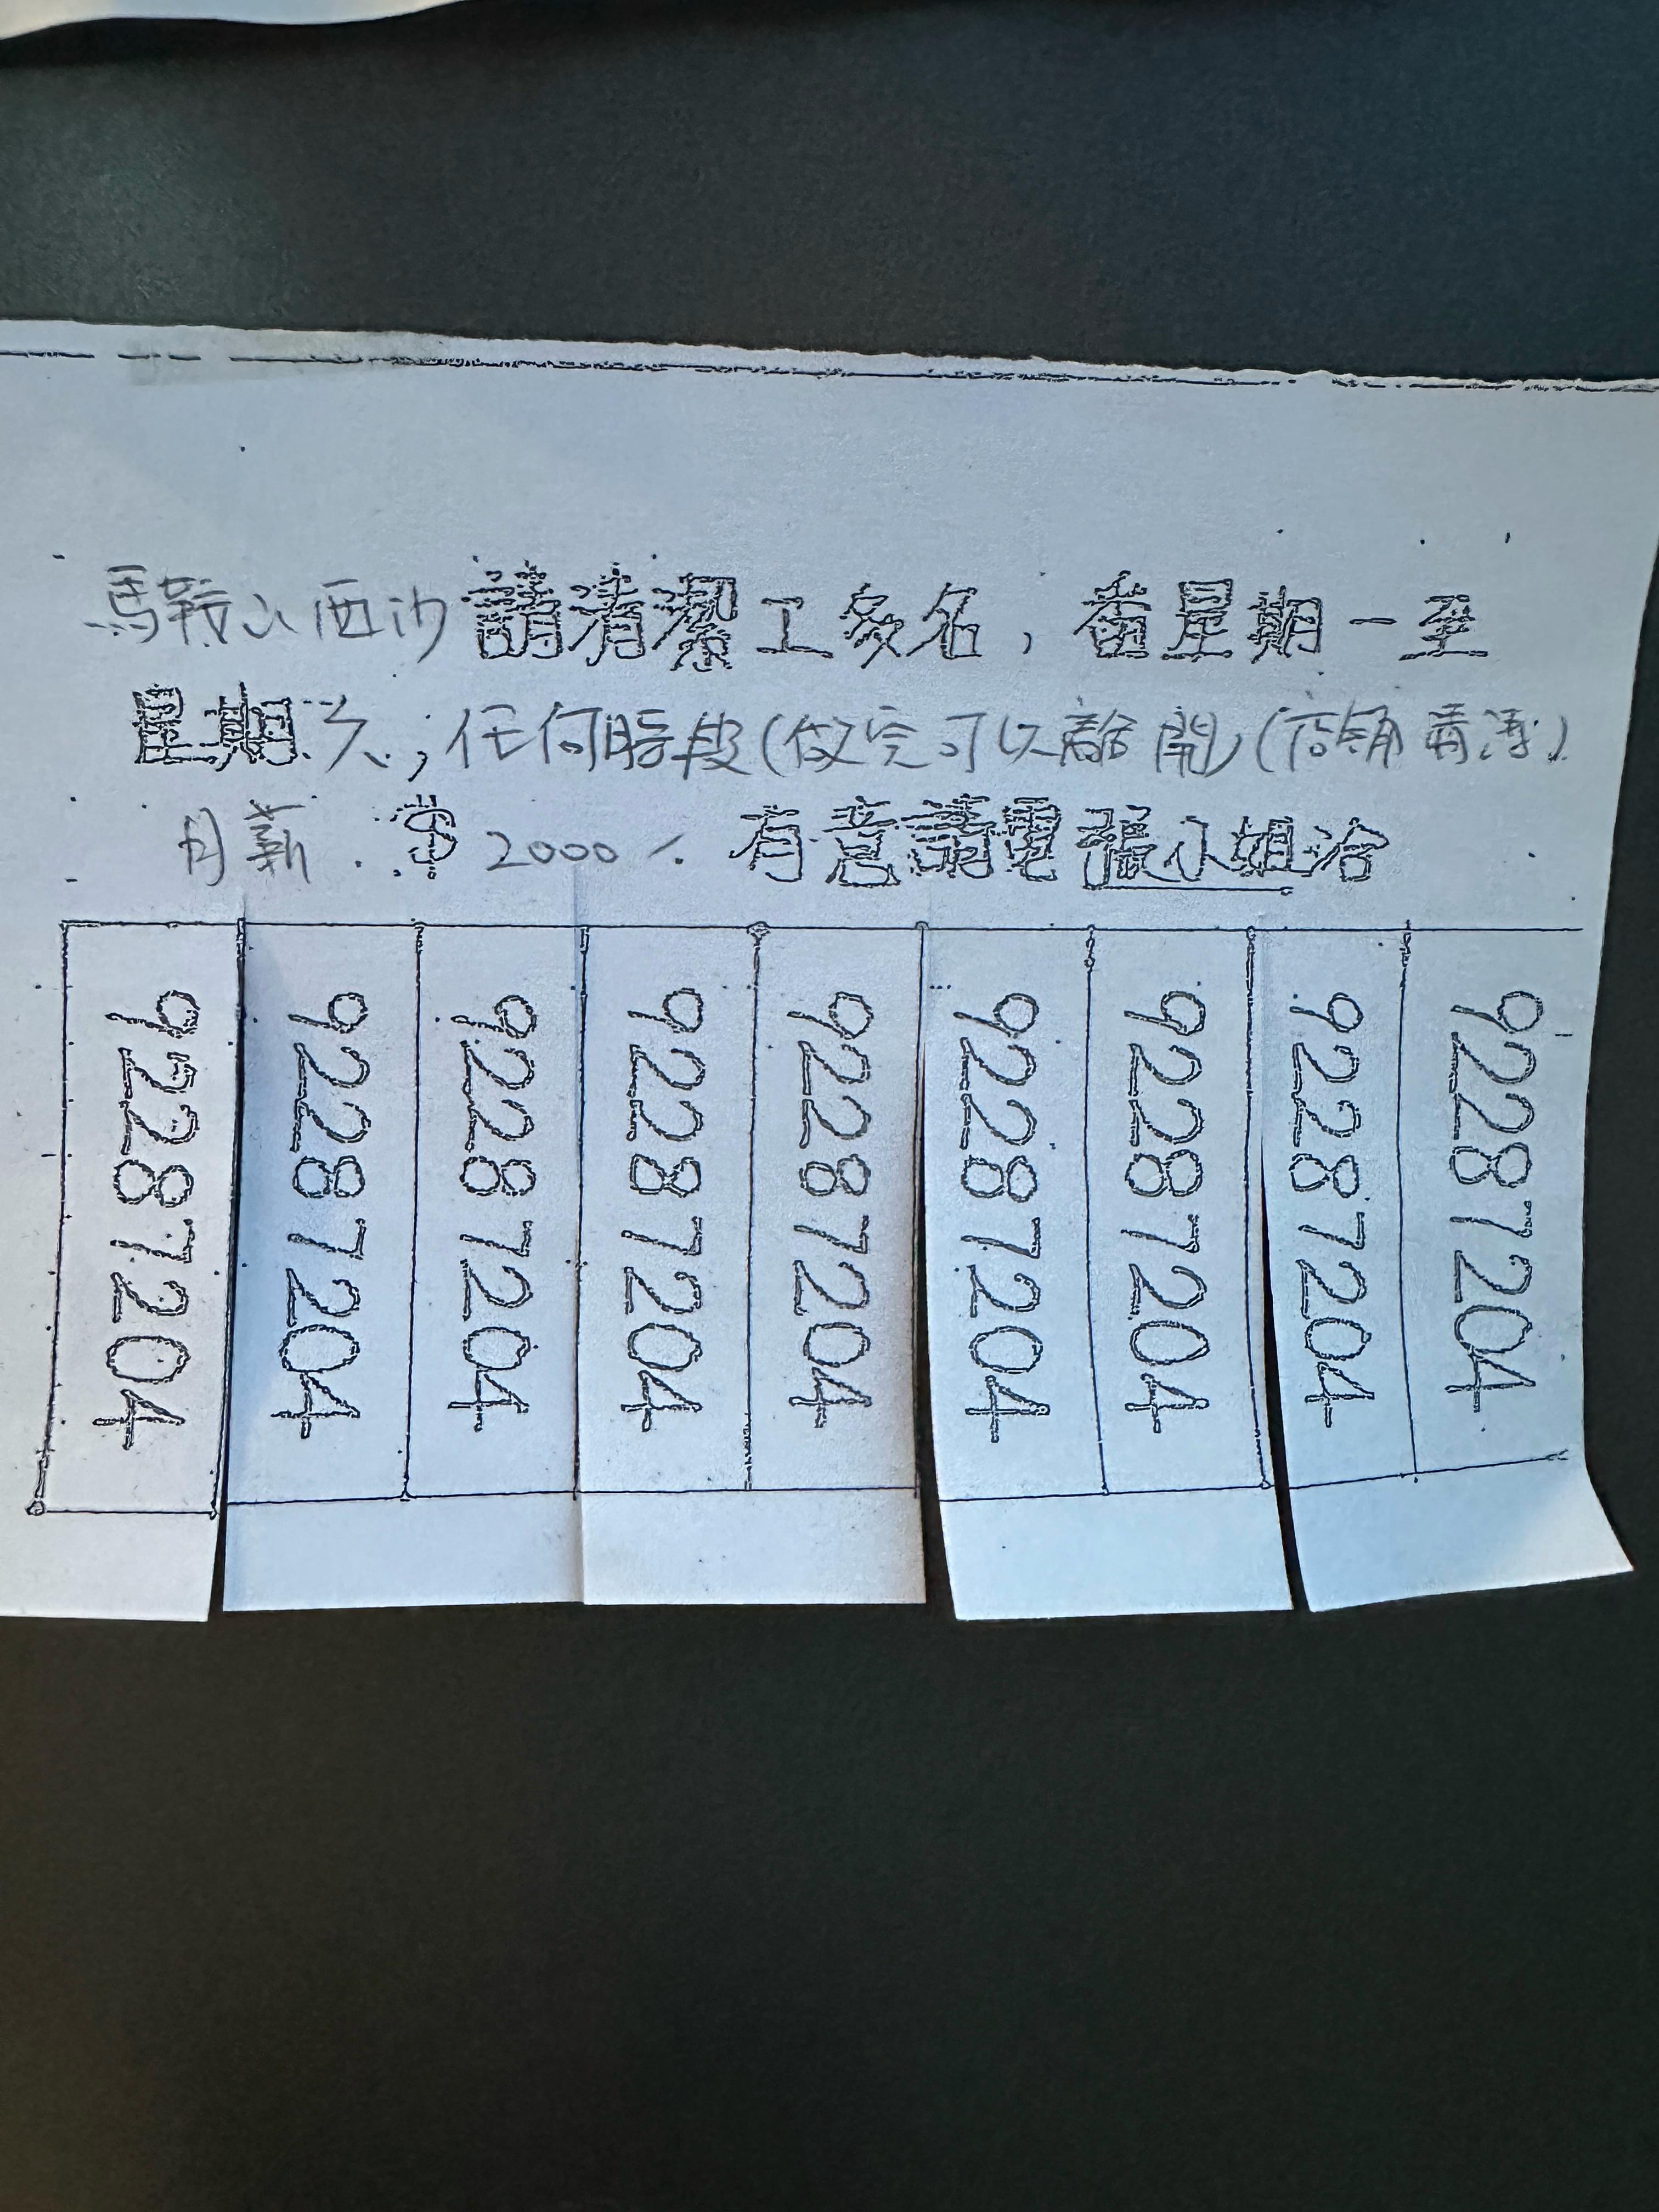 馬鞍山西沙請清潔工多名，番星期一至
星期六，任何時段(做完可以離開)(店鋪清潔)
月薪．$2000/. 有意請電張小姐洽
92287204
92287204
92287204
92287204
92287204
92287204
92287204
92287204
92287204